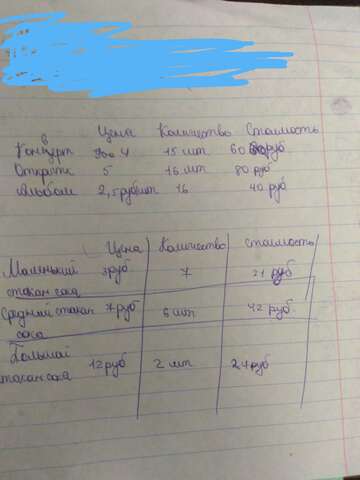 Цена Количество Стоимость
Конверт 4 15 шт 60 руб
Открытки 5 16 шт 80 руб
Альбом 2,5 руб шт 16 40 руб
Цена Количество стоимость
Маленький 3руб 7 21 руб
стакан сока
Средний стакан 7 руб 6 шт 42 руб
сока
Большой
стакан сока 12 руб 2 шт 24руб